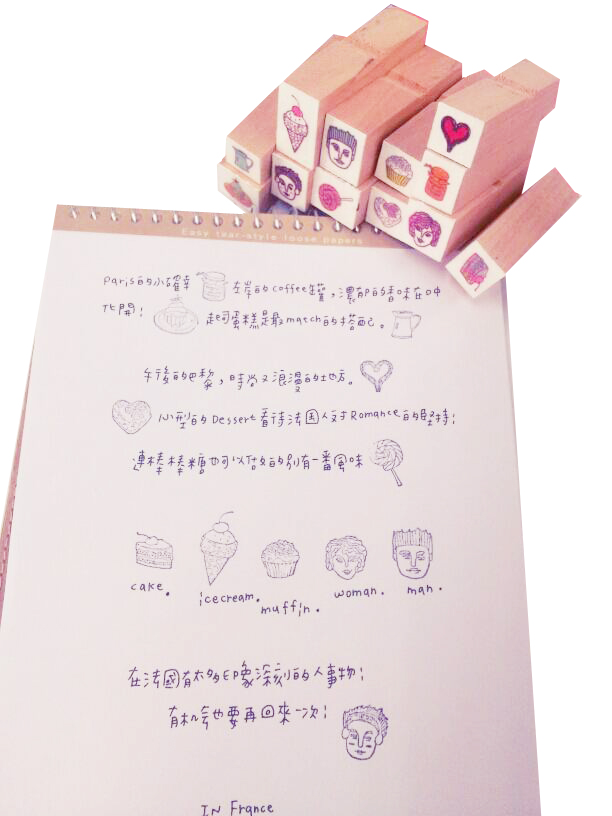 Easy tear-style loose papers
Paris的小確幸 左岸的coffee罐，濃郁的香味在口中
化開！ 起司蛋糕是最match的搭配。
午後的巴黎，時尚又浪漫的地方。
小型的Dessert看待法国人对Romance的堅持！
連棒棒糖也可以做的別有一番風味
cake. icecream. muffin. woman. man.
在法國有太多印象深刻的人事物！
有机会也要再回來一次！
IN France